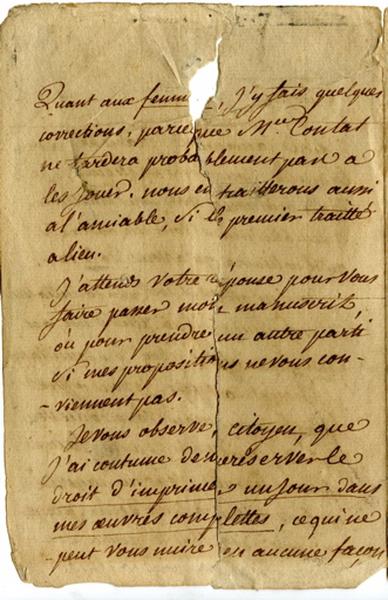 Quant aux femmes, j'y fais quelques
corrections, parceque Mlle Contat
ne tardera probablement pas a
les jouer. nous en traitterons aussi
a l'amiable, si le premier traitté
a lieu.
J'attends votre réponse pour vous
faire passer mon manuscrit,
ou pour prendre un autre parti
si mes propositions ne vous con-
-viennent pas.
Je vous observe, citoyen, que
j'ai coutume de me réserver le
droit d'imprimer un jour dans
mes œuvres complettes, ce qui ne
peut vous nuire en aucune façon